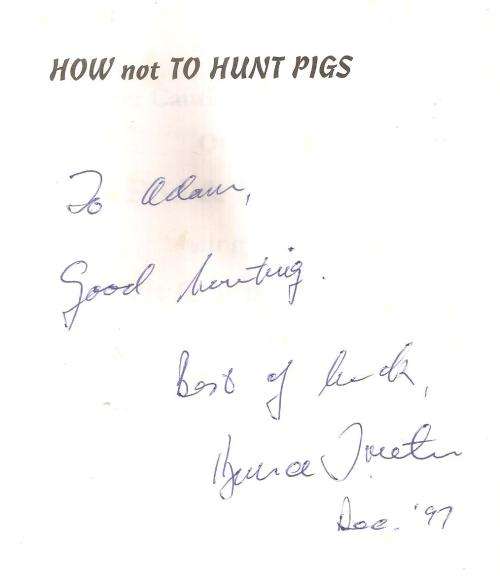 HOW not TO HUNT PIGS
To Adam,
Good hunting.
Best of luck,
Dec. '97